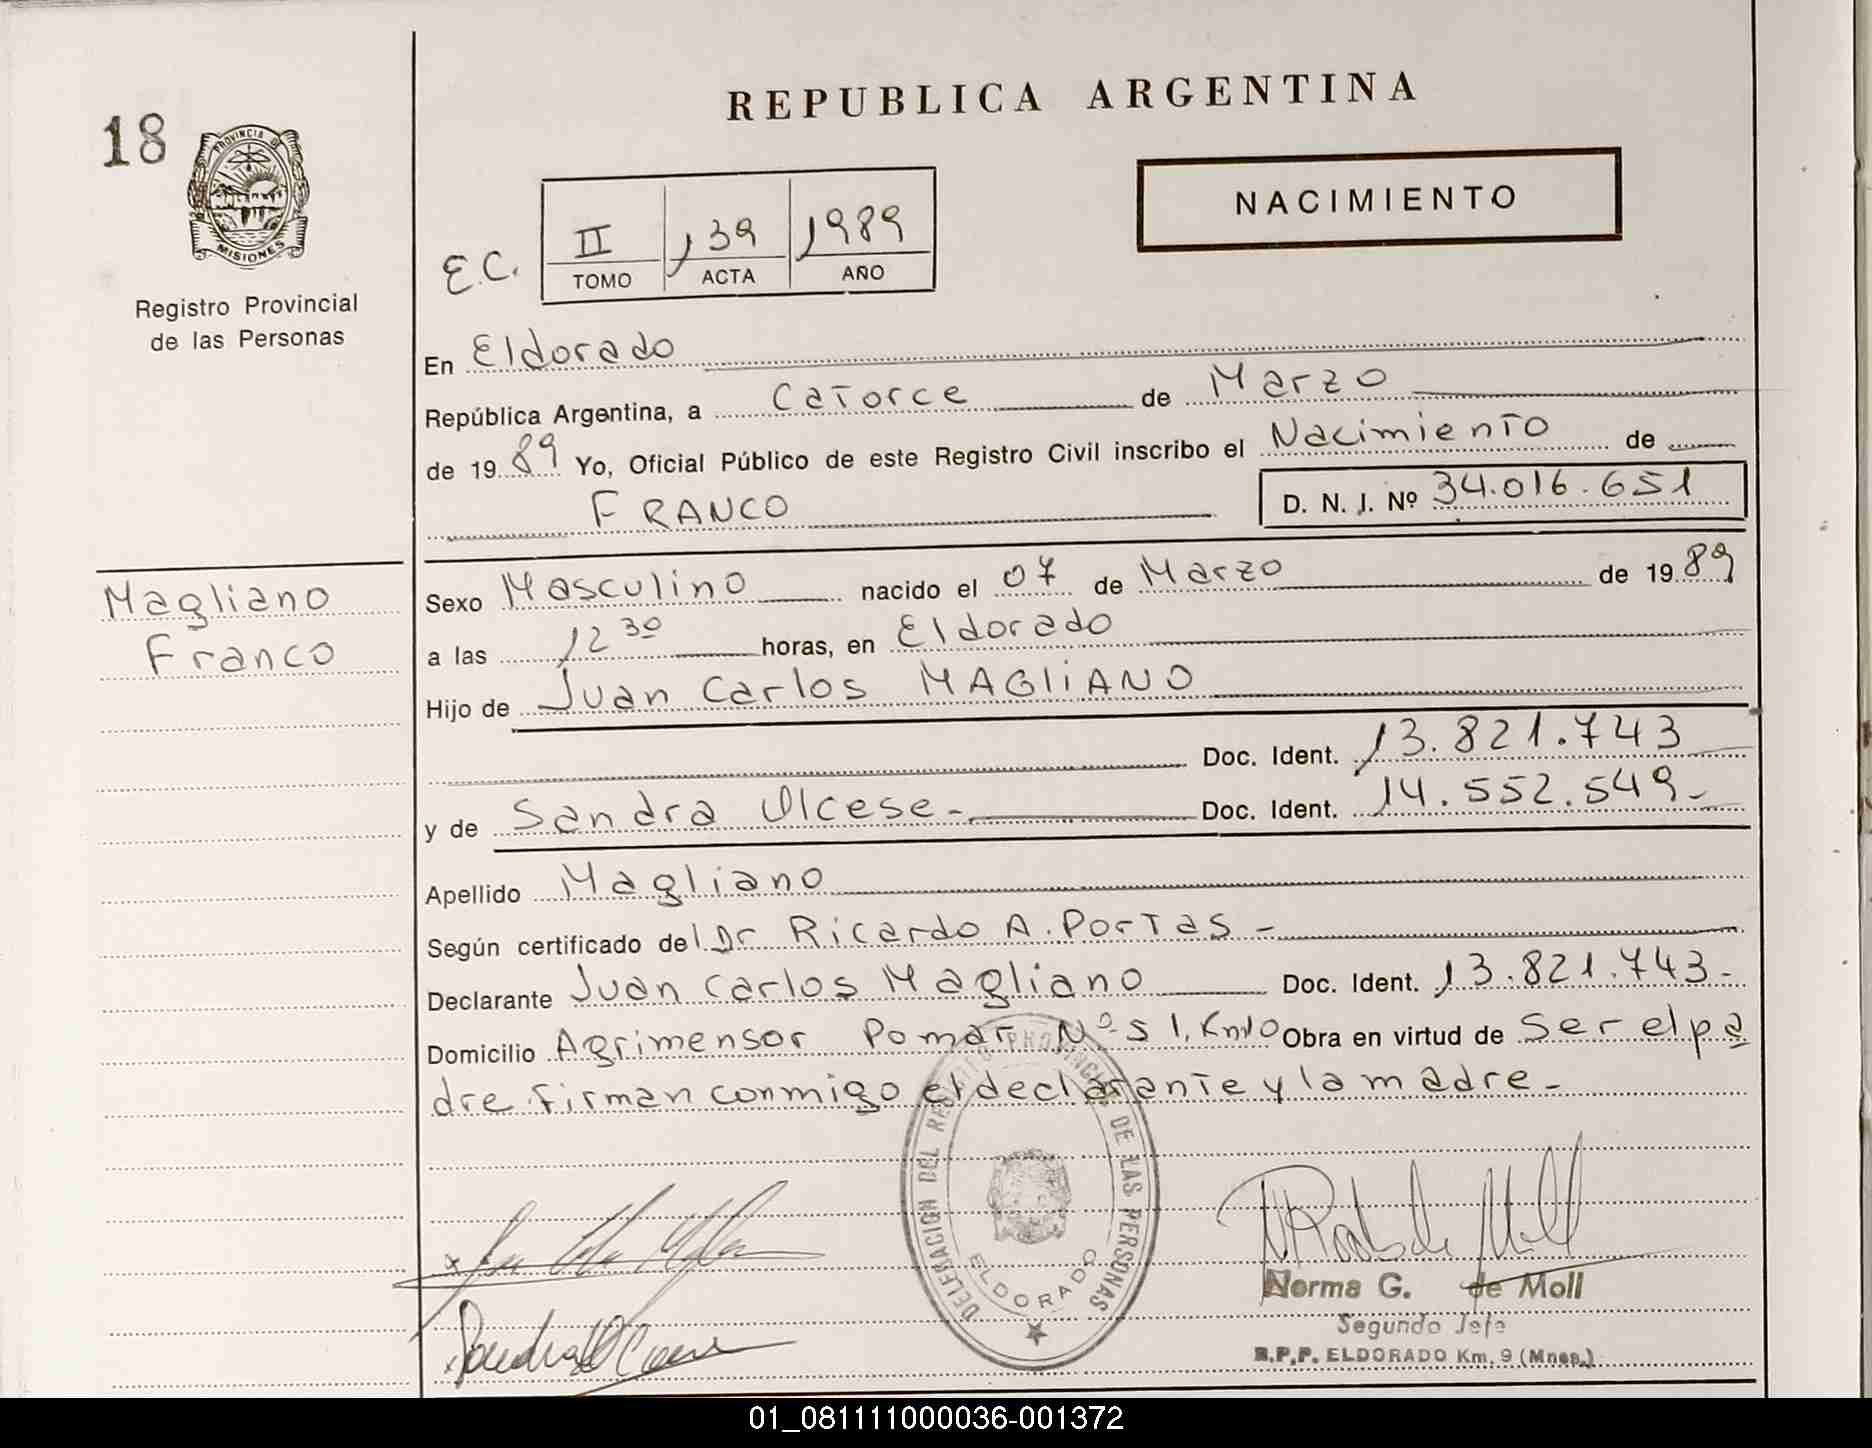 REPUBLICA ARGENTINA
18
PROVINCIA DE
MISIONES
Registro Provincial
de las Personas
NACIMIENTO
E.C.
II 139 1989
TOMO ACTA AÑO
En Eldorado
República Argentina, a Catorce de Marzo
de 1989 Yo, Oficial Público de este Registro Civil inscribo el Nacimiento de
FRANCO D. N. I. Nº 34.016.651
Magliano
Franco
Sexo Masculino nacido el 07 de Marzo de 1989
a las 12 30 horas, en Eldorado
Hijo de Juan Carlos MAGLIANO
Doc. Ident. 13.821.743
y de Sandra Olcese- Doc. Ident. 14.552.549-
Apellido Magliano
Según certificado del Dr Ricardo A. Portas -
Declarante Juan Carlos Magliano Doc. Ident. 13.821.743-
Domicilio Agrimensor Pomar Nº 51, Km10 Obra en virtud de ser el pa
dre firman conmigo el declarante y la madre-
DELEGACION DEL REGISTRO PROVINCIAL DE LAS PERSONAS
ELDORADO
Norma G. de Moll
Segundo Jefe
R.P.P. ELDORADO Km. 9 (Mnes.)
01_081111000036-001372